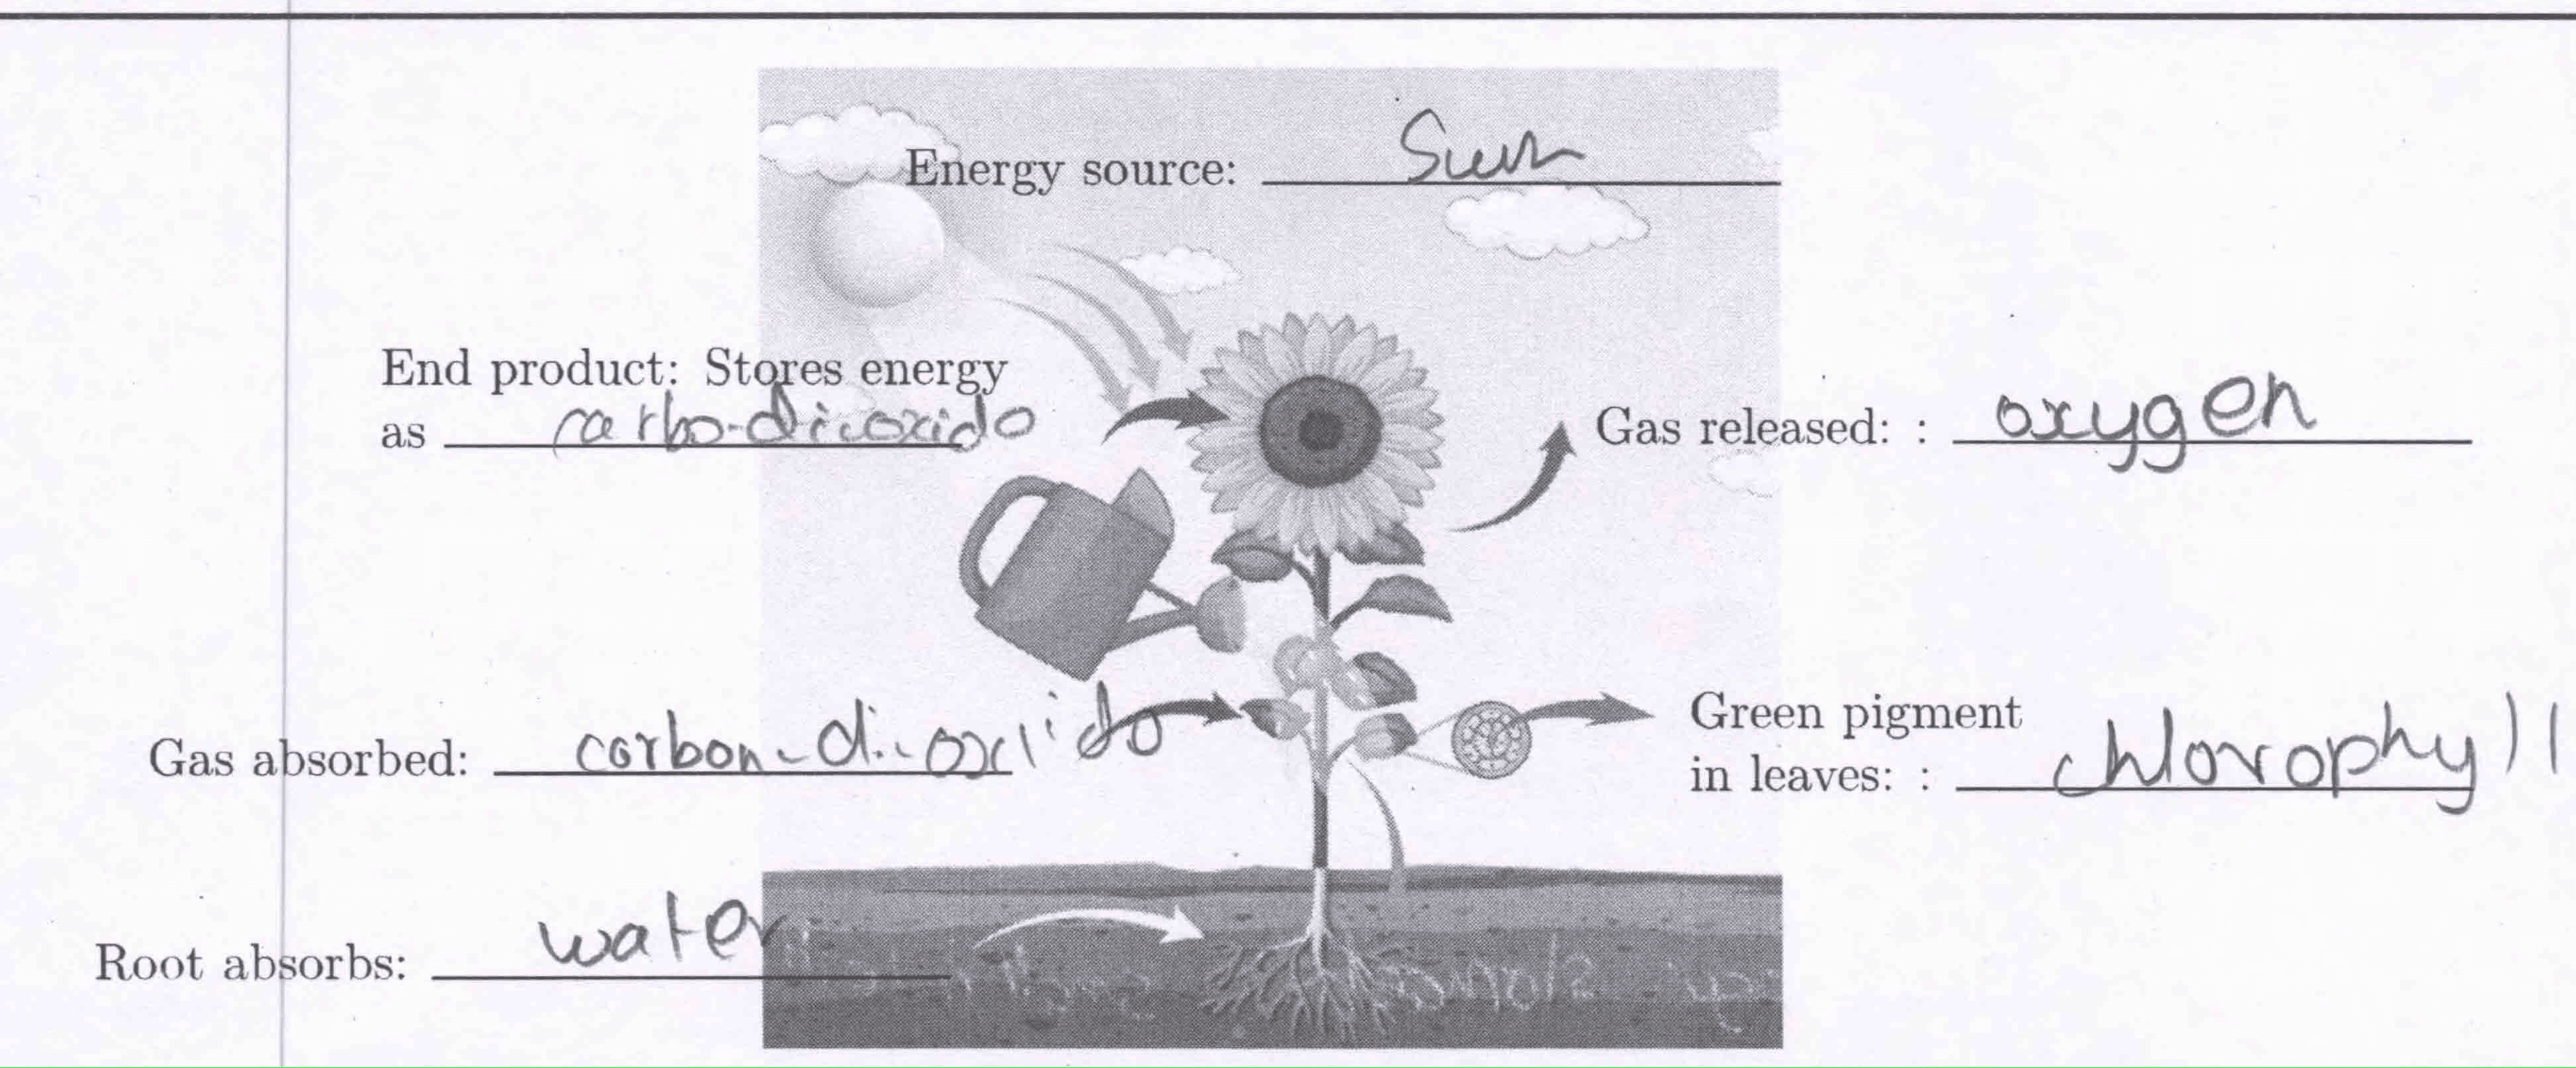 Energy source: Sun
End product: Stores energy
as carbo-dicoxido
Gas released: : oxygen
Gas absorbed: carbon-di-oxido
Green pigment
in leaves: : chlorophyll
Root absorbs: water